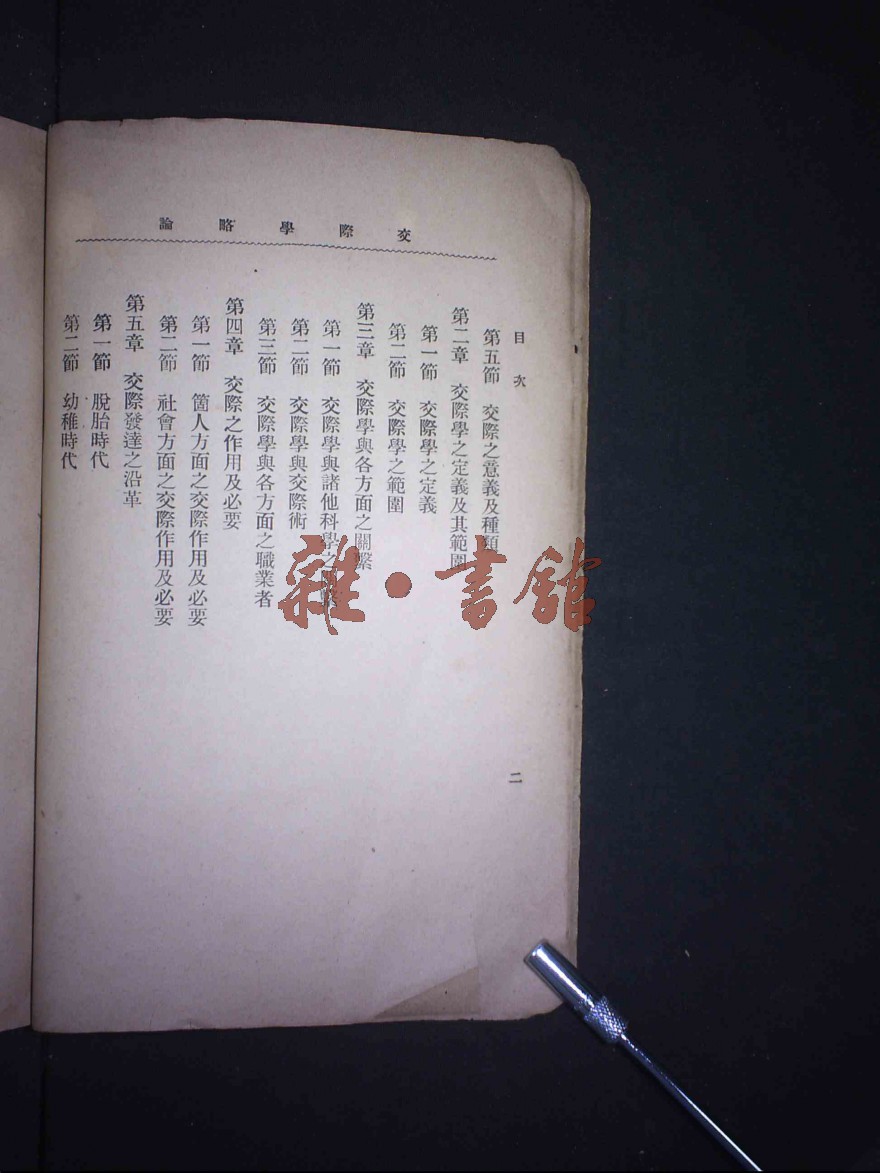 交際學略論
目次
第五節 交際之意義及種類
第二章 交際學之定義及其範圍
第一節 交際學之定義
第二節 交際學之範圍
第三章 交際學與各方面之關繫
第一節 交際學與諸他科學之關繫
第二節 交際學與交際術
第三節 交際學與各方面之職業者
第四章 交際之作用及必要
第一節 箇人方面之交際作用及必要
第二節 社會方面之交際作用及必要
第五章 交際發達之沿革
第一節 脫胎時代
第二節 幼稚時代
二
雜·書館